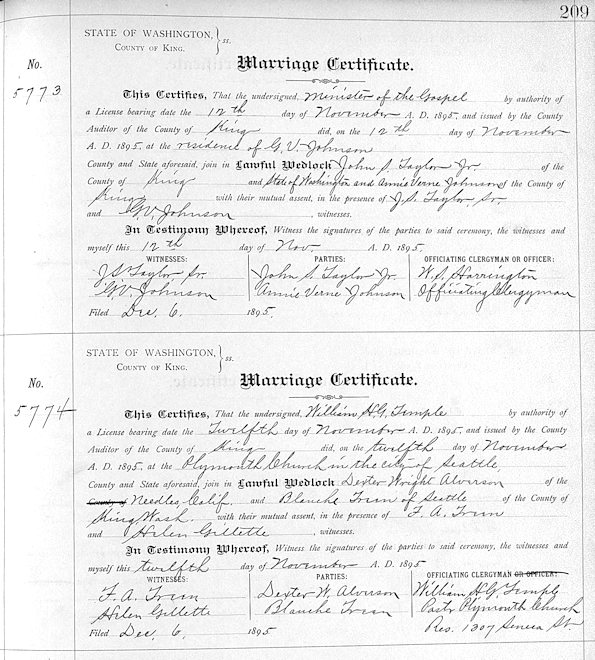 209
STATE OF WASHINGTON, } ss.
COUNTY OF KING.
No.
Marriage Certificate.
5773
This Certifies, That the undersigned, Minister of the Gospel by authority of
a License bearing date the 12th day of November A. D. 1895, and issued by the County
Auditor of the County of King did, on the 12th day of November
A. D. 1895, at the residence of G. V. Johnson
County and State aforesaid, join in Lawful Wedlock John S. Taylor Jr. of the
County of King and State of Washington and Annie Verne Johnson of the County of
King with their mutual assent, in the presence of J. S. Taylor, Sr.
and G. V. Johnson, witnesses.
In Testimony Whereof, Witness the signatures of the parties to said ceremony, the witnesses and
myself this 12th day of Nov. A. D. 1895.
WITNESSES: PARTIES: OFFICIATING CLERGYMAN OR OFFICER:
J S Taylor Sr. John S. Taylor Jr. W. S. Harrington
G. V. Johnson Annie Verne Johnson Officiating Clergyman
Filed Dec. 6. 1895.
STATE OF WASHINGTON, } ss.
COUNTY OF KING.
No.
Marriage Certificate.
5774
This Certifies, That the undersigned, William H. G. Temple by authority of
a License bearing date the Twelfth day of November A. D. 1895, and issued by the County
Auditor of the County of King did, on the twelfth day of November
A. D. 1895, at the Plymouth Church in the city of Seattle,
County and State aforesaid, join in Lawful Wedlock Dexter Wright Alverson of the
County of Needles, Calif. and Blanche Trum of Seattle of the County of
King, Wash. with their mutual assent, in the presence of F. A. Trum
and Helen Gillette, witnesses.
In Testimony Whereof, Witness the signatures of the parties to said ceremony, the witnesses and
myself this twelfth day of November A. D. 1895
WITNESSES: PARTIES: OFFICIATING CLERGYMAN OR OFFICER:
F. A. Trum Dexter W. Alverson William H. G. Temple
Helen Gillette Blanche Trum Pastor Plymouth Church
Filed Dec. 6, 1895 Res. 1307 Seneca St.